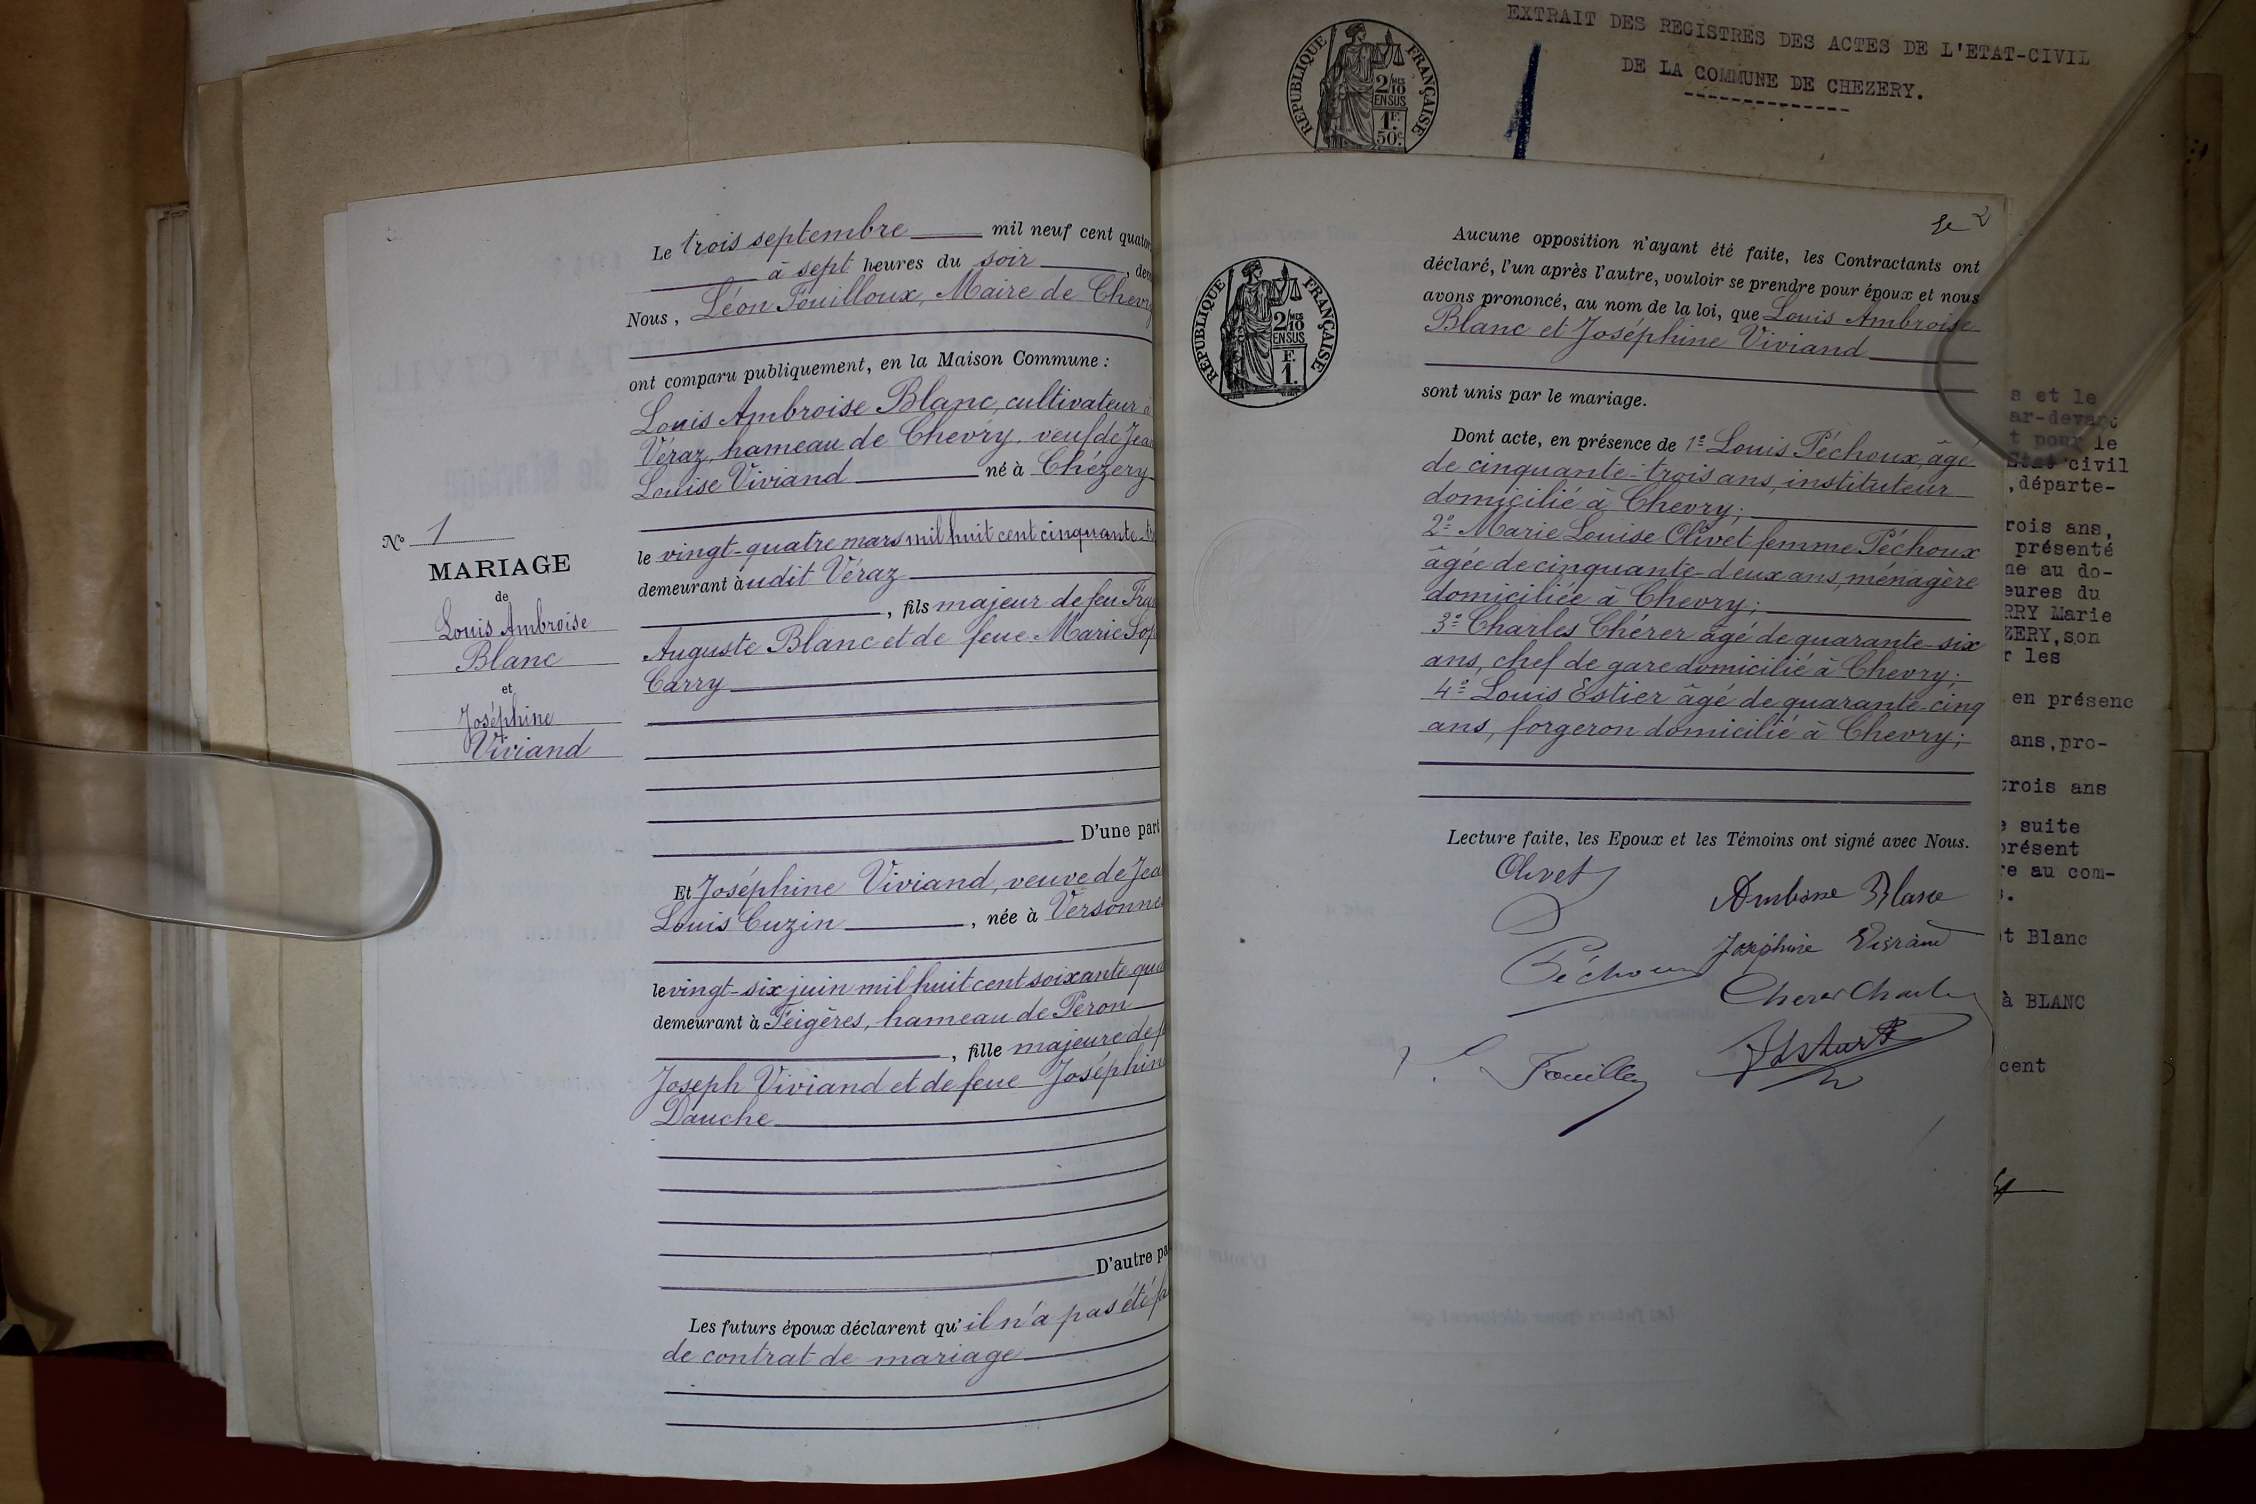 Le trois septembre mil neuf cent quator
à sept heures du soir, dev
Nous, Léon Fouilloux, Maire de Chevry
ont comparu publiquement, en la Maison Commune :
Louis Ambroise Blanc, cultivateur à
Véraz, hameau de Chevry, veuf de Jea
Louise Viviand né à Chézery
le vingt-quatre mars mil huit cent cinquante-t
demeurant àudit Véraz
, fils majeur de feu Fra
Auguste Blanc et de feue Marie Sop
Carry
D'une part
Et Joséphine Viviand, veuve de Jea
Louis Cuzin, née à Versonne
le vingt-six juin mil huit cent soixante-qua
demeurant à Feigères, hameau de Péron
, fille majeure de f
Joseph Viviand et de feue Joséphin
Dauche
D'autre pa
Les futurs époux déclarent qu'il n'a pas été fa
de contrat de mariage
N° 1
MARIAGE
de
Louis Ambroise
Blanc
et
Joséphine
Viviand
EXTRAIT DES REGISTRES DES ACTES DE L'ETAT-CIVIL
DE LA COMMUNE DE CHEZERY.
RÉPUBLIQUE FRANÇAISE
2/10 MES
EN SUS
1F.
50c.
2
RÉPUBLIQUE FRANÇAISE
2/10 MES
EN SUS
F.
1.
Aucune opposition n'ayant été faite, les Contractants ont
déclaré, l'un après l'autre, vouloir se prendre pour époux et nous
avons prononcé, au nom de la loi, que Louis Ambroise
Blanc et Joséphine Viviand
sont unis par le mariage.
Dont acte, en présence de 1° Louis Péchoux, âgé
de cinquante-trois ans, instituteur
domicilié à Chevry;
2° Marie Louise Olivet femme Péchoux
âgée de cinquante-deux ans, ménagère
domiciliée à Chevry;
3° Charles Chérer âgé de quarante-six
ans, chef de gare domicilié à Chevry;
4° Louis Estier âgé de quarante-cinq
ans, forgeron domicilié à Chevry;
Lecture faite, les Epoux et les Témoins ont signé avec Nous.
Olivet
Ambroise Blanc
Joséphine Viviand
Péchoux
Cherer Charles
L. Fouilloux
s et le
ar-devant
t pour le
Etat civil
,départe-
rois ans,
présenté
ne au do-
eures du
RRY Marie
ZERY,son
r les
en présenc
ans,pro-
trois ans
e suite
présent
re au com-
s.
et Blanc
à BLANC
cent